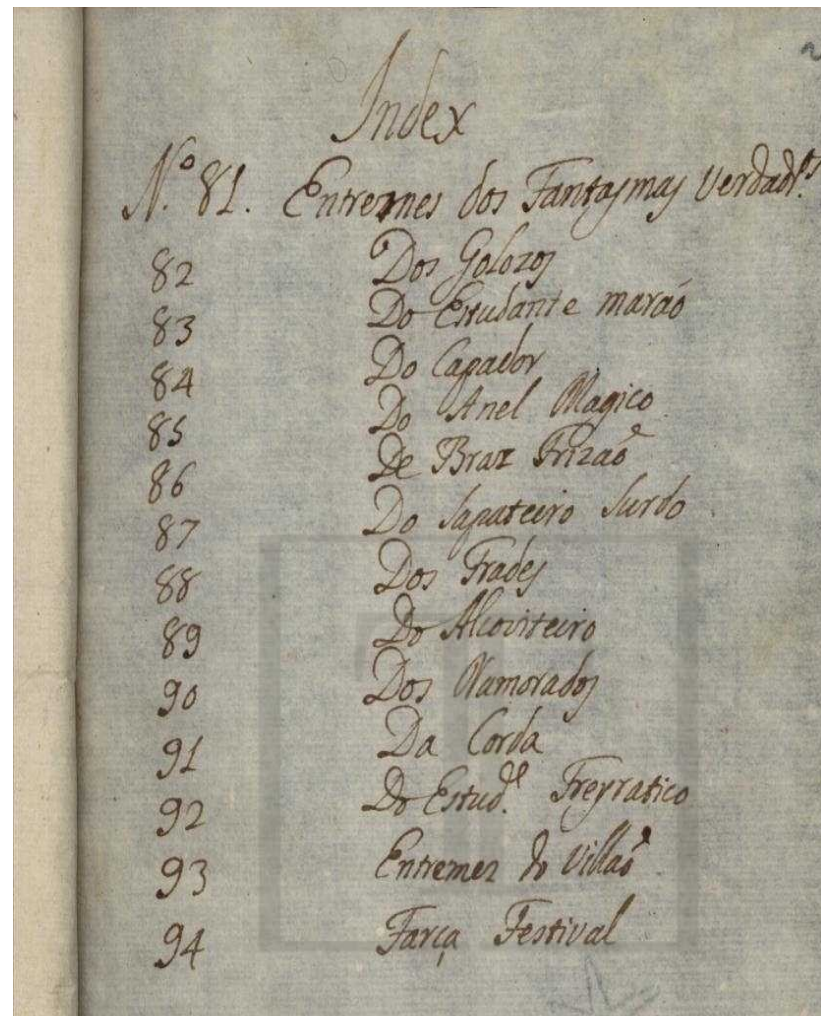 Index
N.º 81. Entremes dos Fantasmas Verdadr.os
82 Dos Golozos
83 Do Estudante maraó
84 Do Capador
85 Do Anel Magico
86 De Braz Frizaó
87 Do Sapateiro Surdo
88 Dos Frades
89 Do Alcoviteiro
90 Dos Namorados
91 Da Corda
92 Do Estud.e Freyratico
93 Entremez do Villaó
94 Farça Festival